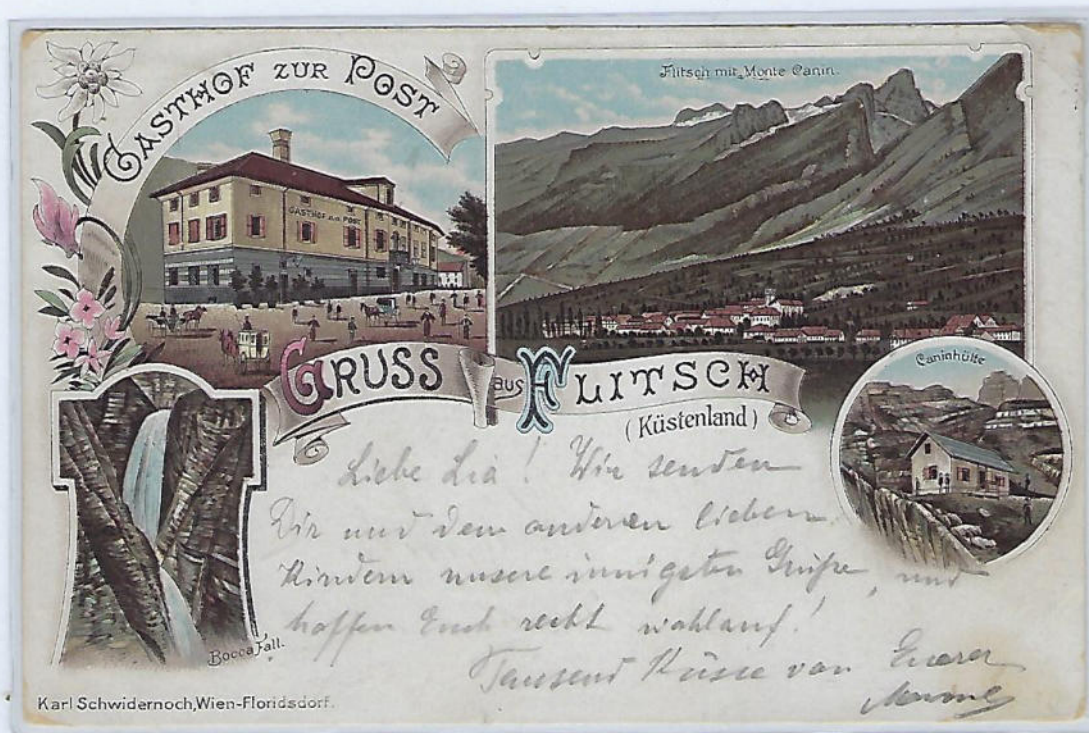 GASTHOF ZUR POST
Flitsch mit Monte Canin.
GASTHOF ZUR POST
GRUSS aus FLITSCH
(Küstenland)
Caninhütte
Liebe Lia! Wir senden
Dir und dem anderen lieben
Kindern unsere innigsten Grüße, und
hoffen Euch recht wohlauf!
Tausend Küsse von Euerer
Bocca Fall.
Karl Schwidernoch, Wien-Floridsdorf.